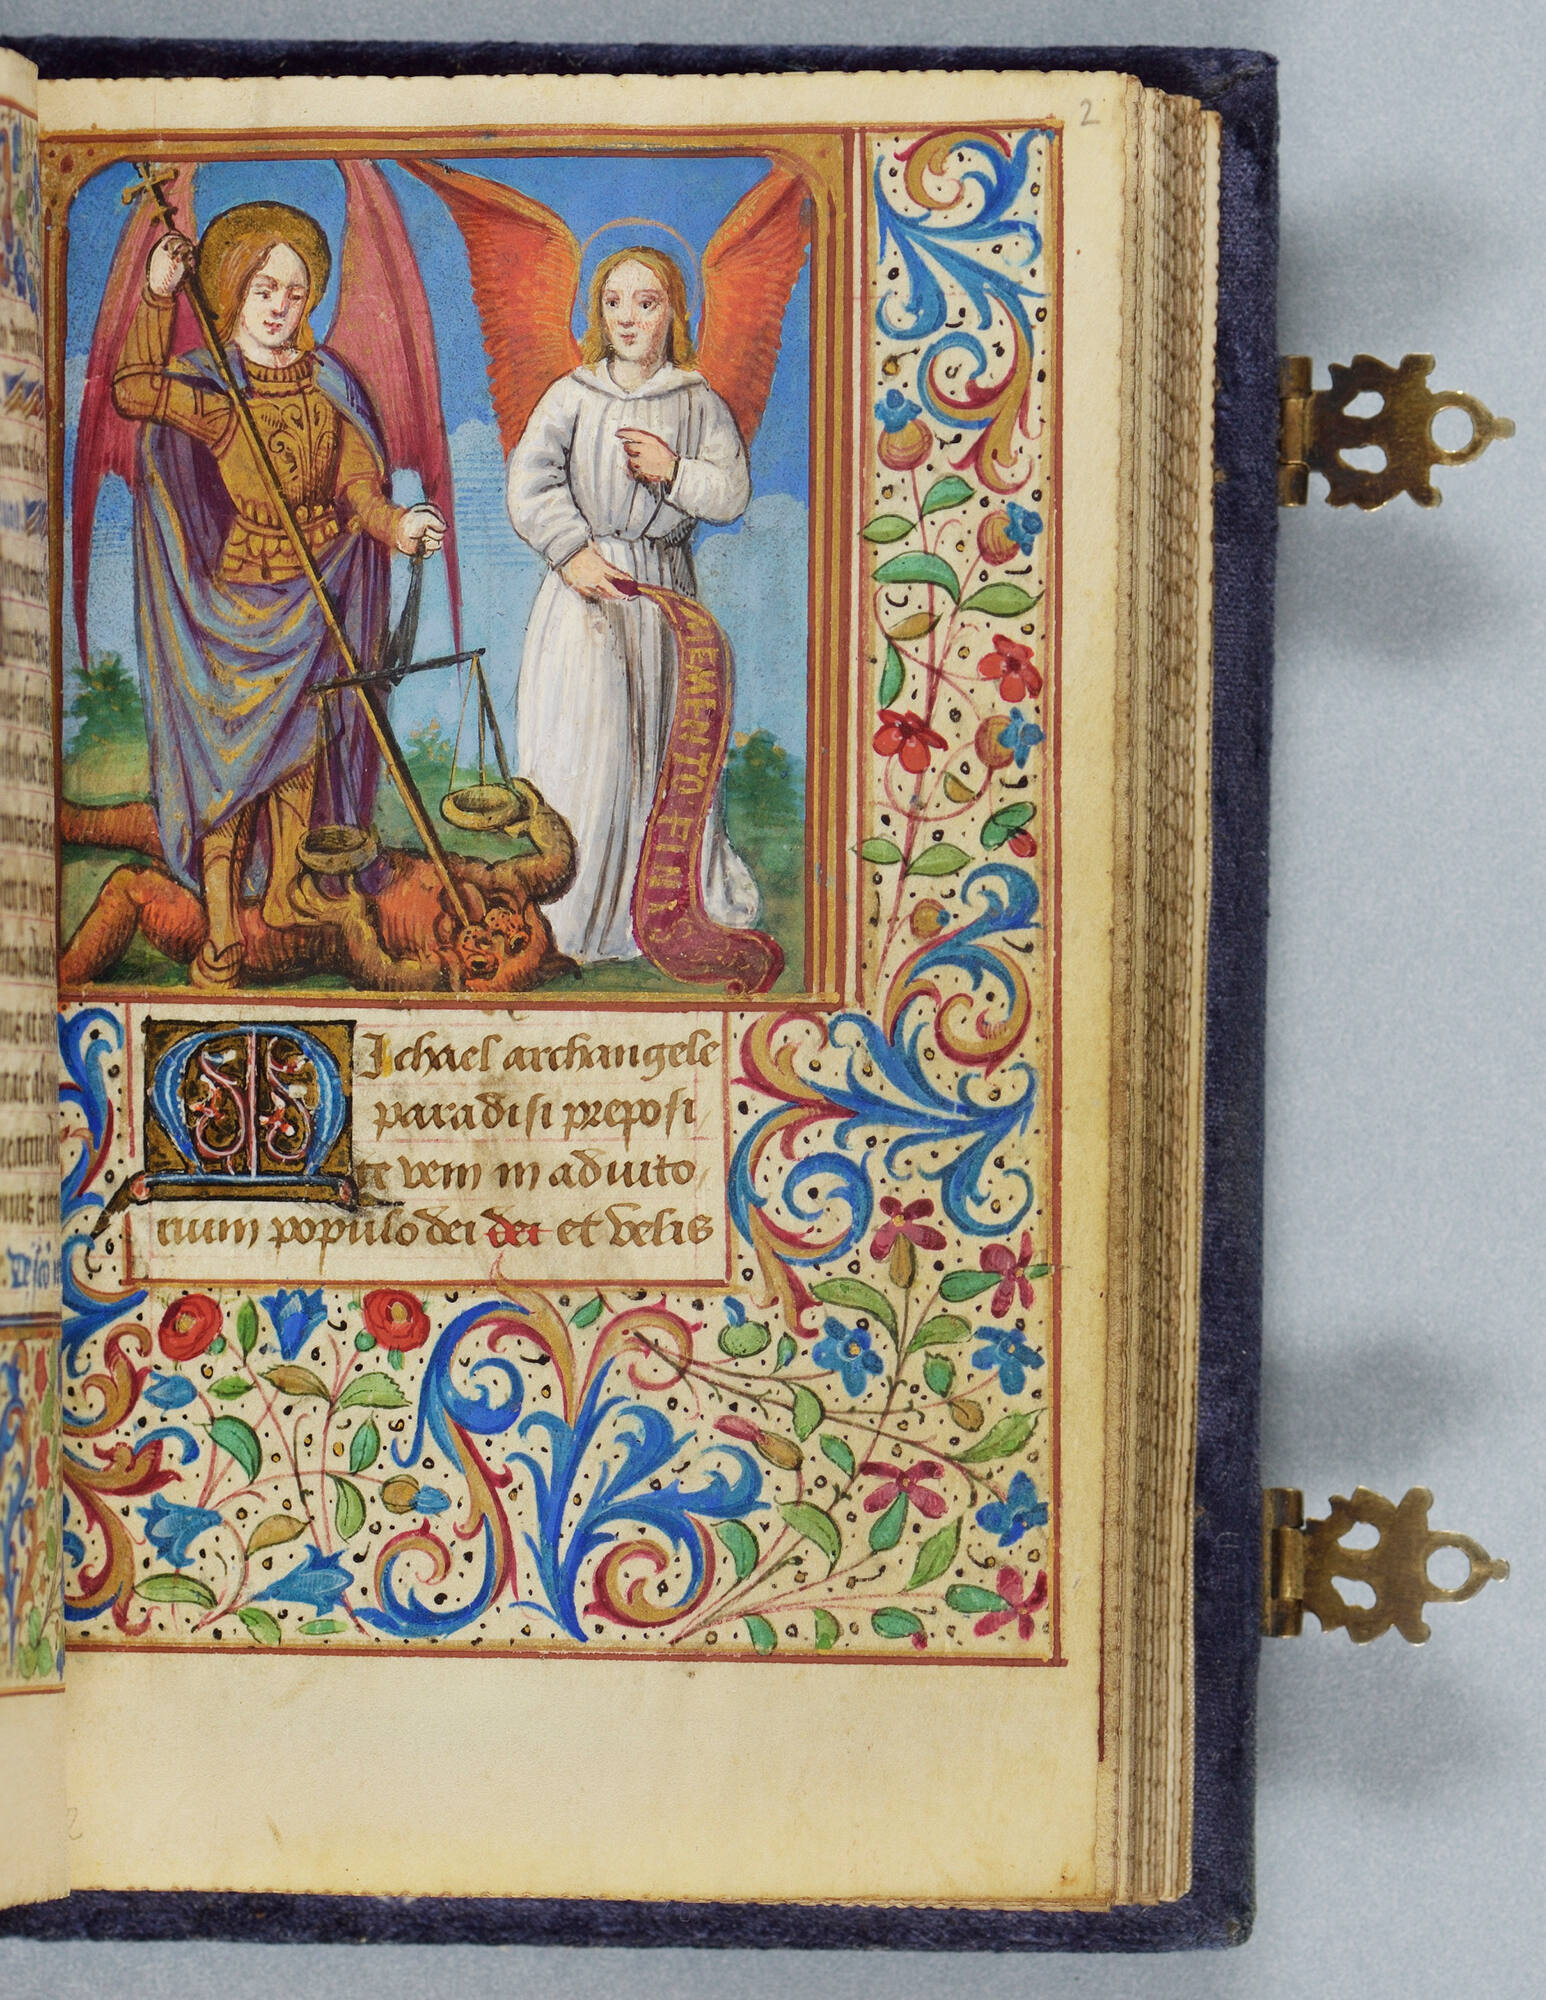 2
MEMENTO FINIS
Michael archangele
paradisi preposi
te veni in adiuto
rium populo dei dei et velis
2